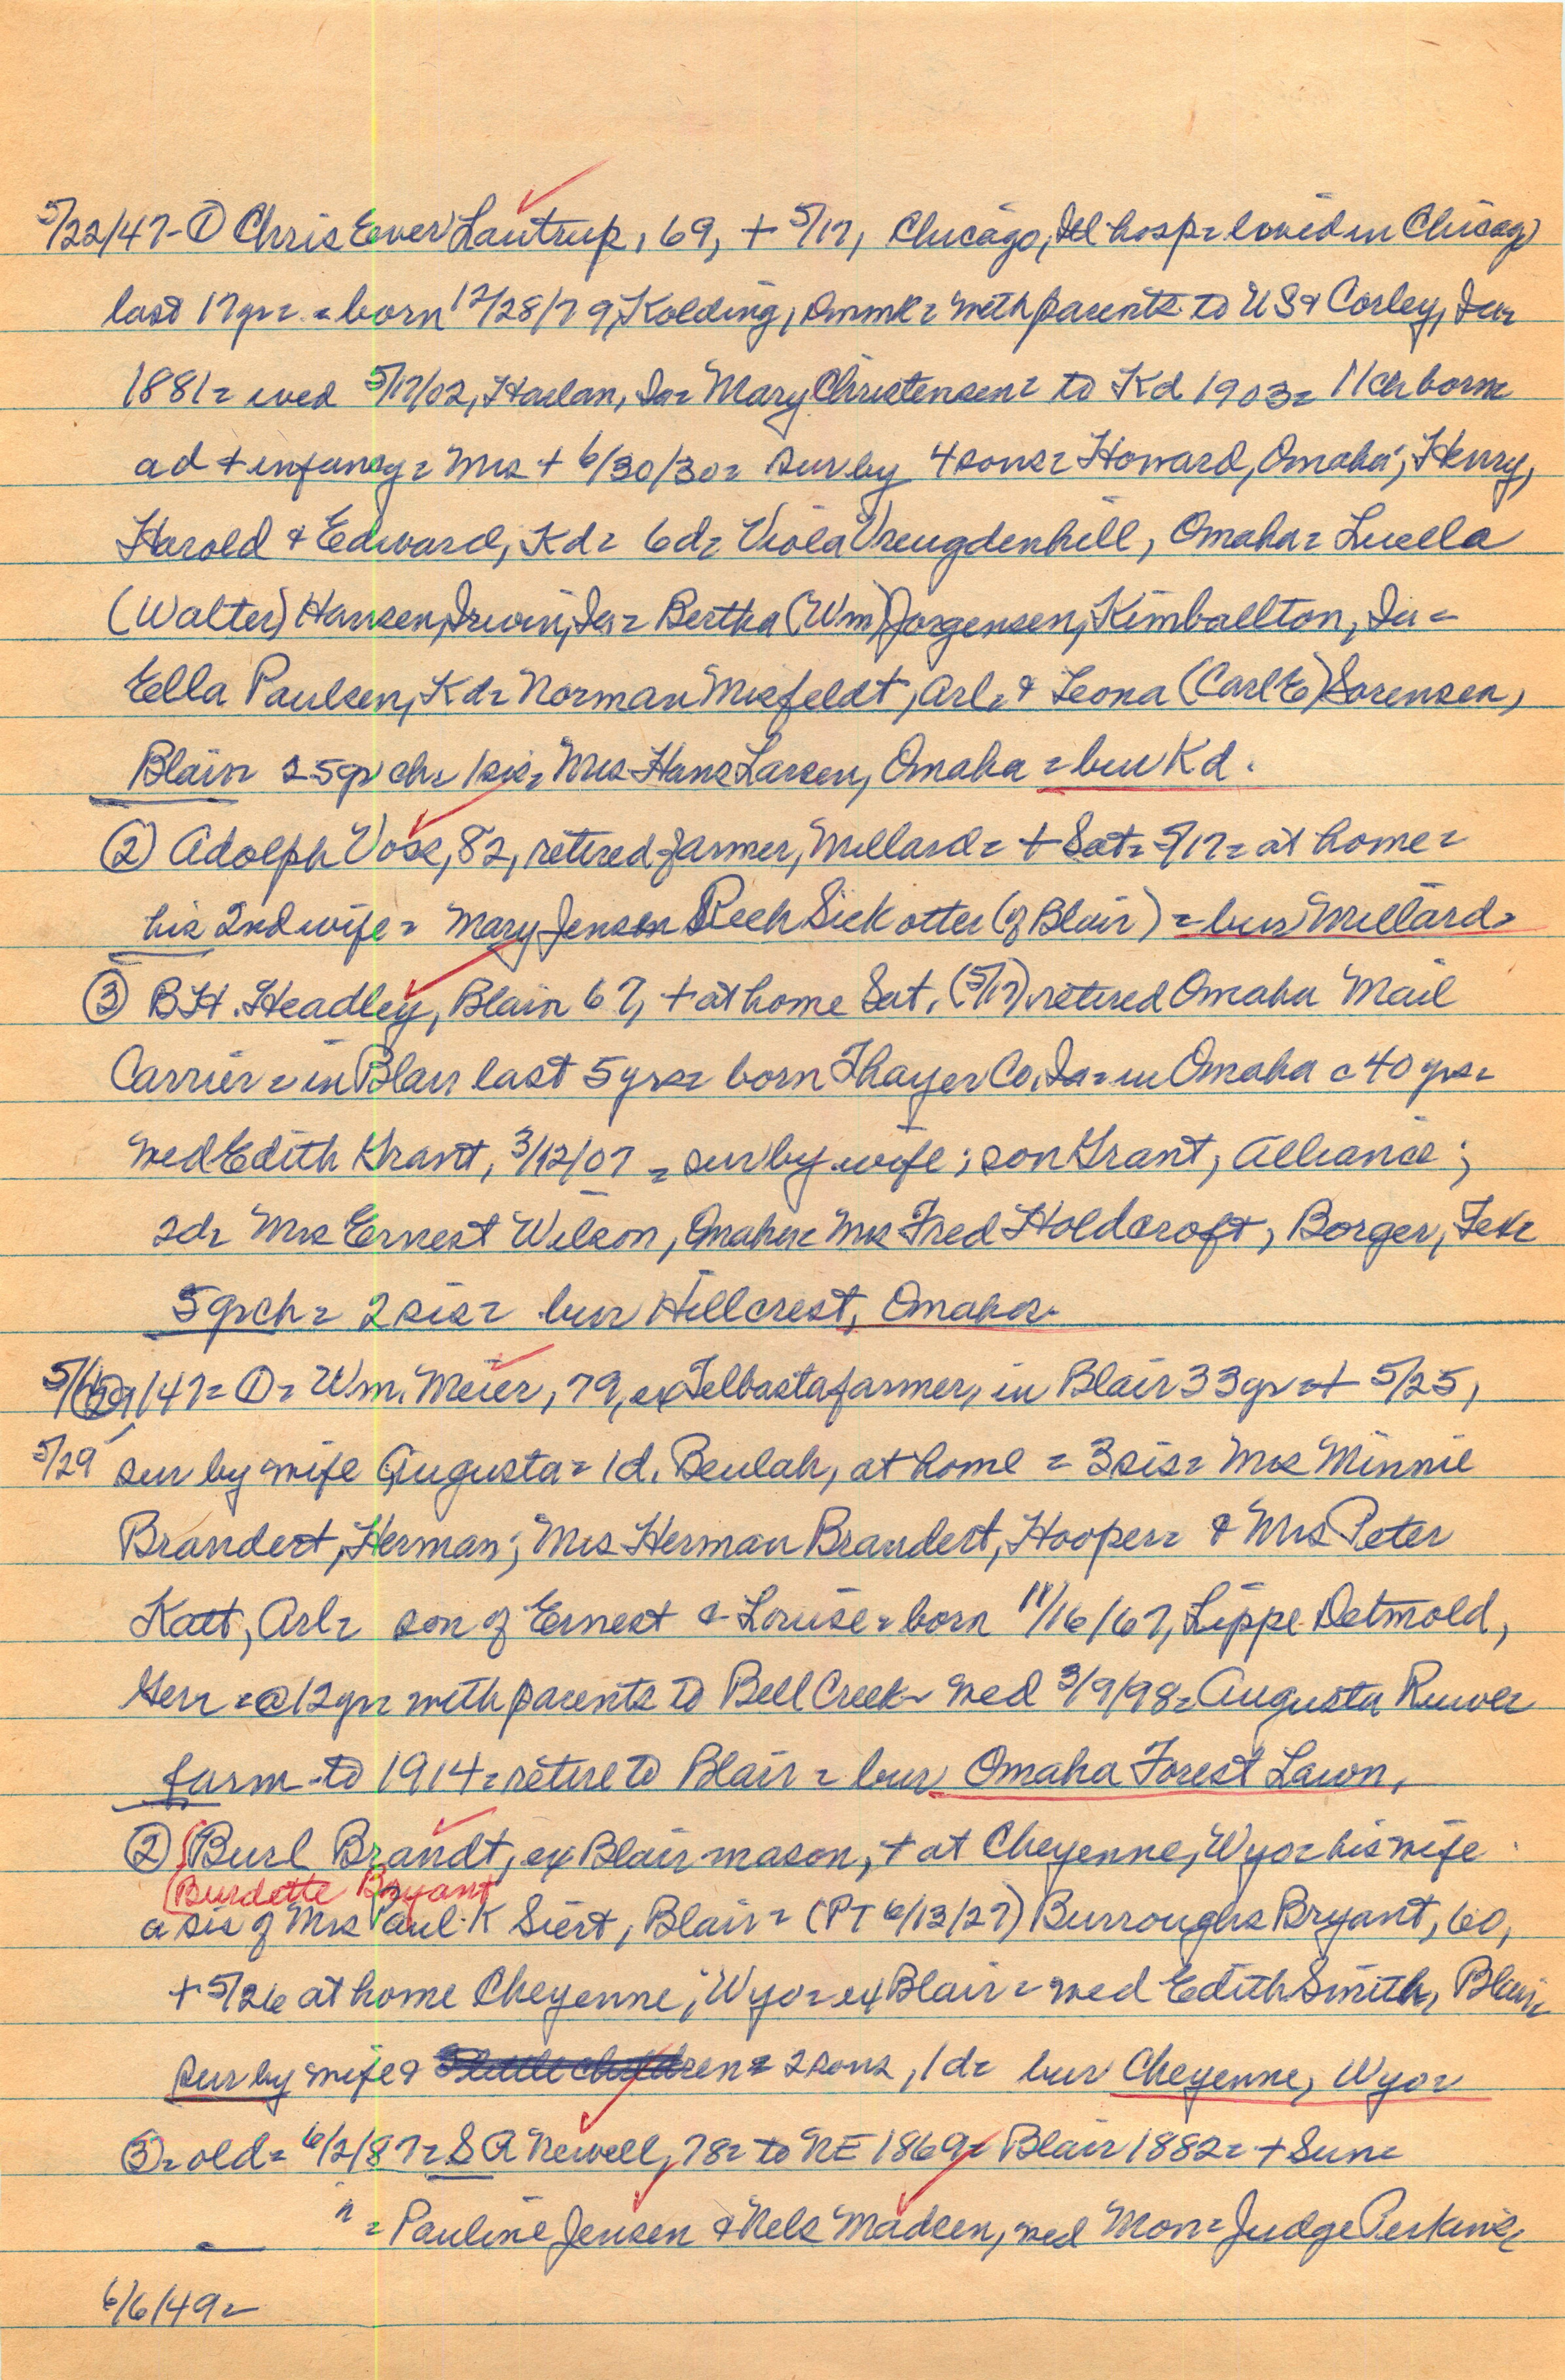 5/22/47- ① Chris Ever Lautrup, 69, + 5/17, Chicago, Ill hosp= lived in Chicago
last 17yr= = born 12/28/79, Kolding, Dnmk= with parents to US & Corley, Ia=
1881= wed 5/17/02, Harlan, Ia= Mary Christensen= to Kd 1903= 11ch born=
a d + infancy= Mrs + 6/30/30= sur by 4 sons= Howard, Omaha; Henry,
Harold & Edward, Kd= 6d= Viola Vreugdenhill, Omaha= Luella
(Walter) Hansen, Irwin, Ia= Bertha (Wm) Jorgensen, Kimballton, Ia=
Ella Paulsen, Kd= Norman Misfeldt, Arl= & Leona (Carl E) Sorensen,
Blair= 25gr ch= 1sis= Mrs Hans Larsen, Omaha = bur Kd.
② Adolph Voss, 82, retired farmer, Millard= + Sat= 5/17= at home=
his 2nd wife= Mary Jensen Rech Sick otter (of Blair) = bur Millard=
③ B.H. Headley, Blair 67, + at home Sat. (5/17) retired Omaha Mail
Carrier= in Blair last 5yrs= born Thayer Co. Ia= in Omaha c 40 yrs=
wed Edith Grant, 3/12/07 = sur by wife; son Grant, Alliance;
2d= Mrs Ernest Wilson, Omaha= Mrs Fred Holdcroft, Borger, Tex=
5grch= 2 sis= bur Hillcrest, Omaha=
5/29/47= ①= Wm. Meier, 79, ex Telbasta farmer, in Blair 33yr= + 5/25,
5/29 sur by wife Augusta= 1d. Beulah, at home = 3sis= Mrs Minnie
Brandert, Herman; Mrs Herman Brandert, Hooper= & Mrs Peter
Katt, Arl= son of Ernest & Louise= born 11/16/67, Lippe Detmold,
Ger= =@12yr with parents to Bell Creek= wed 3/9/98= Augusta Ruwe=
farm to 1914= retire to Blair = bur Omaha Forest Lawn,
② Burl Brandt, ex Blair mason, + at Cheyenne, Wyo= his wife
Burdette Bryant
a sis of Mrs Paul K Siert, Blair= (PT 6/13/27) Burroughs Bryant, 60,
+ 5/26 at home Cheyenne, Wyo= ex Blair= wed Edith Smith, Blair=
sur by wife & 2 sons, 1d= bur Cheyenne, Wyo=
③= old= 6/2/87= S R Newell, 78= to NE 1869= Blair 1882= + Sun=
" = Pauline Jensen & Nels Madsen, wed Mon= Judge Perkins=
6/6/49=